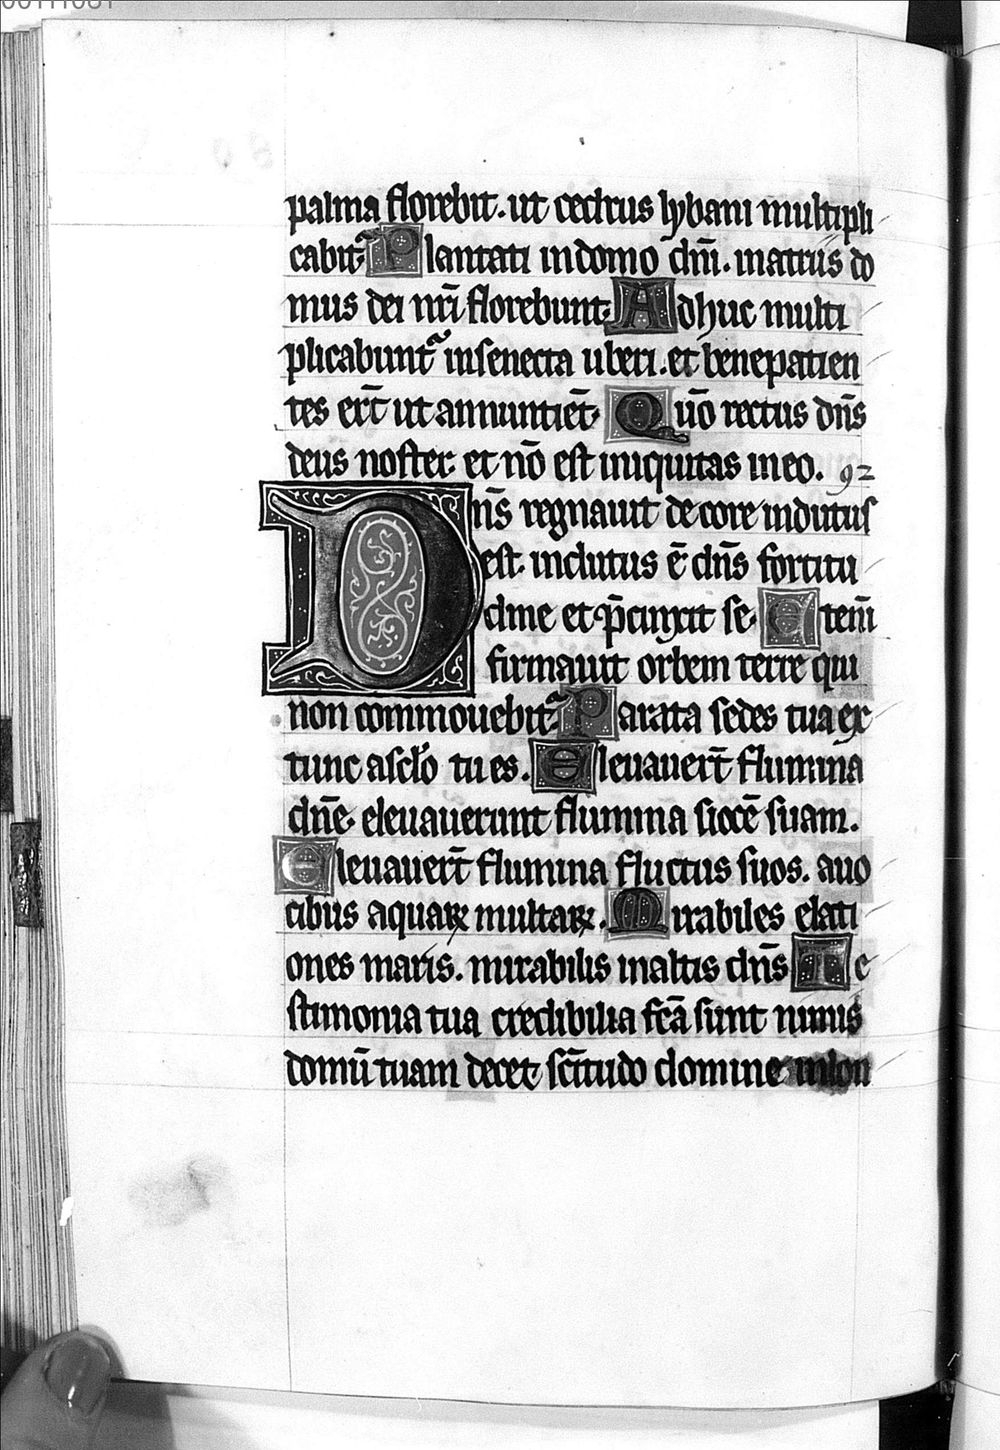 00111081
palma florebit. ut cedrus lybani multipli
cabit᷑ Plantati in domo dn̄i. in atriis do
mus dei nr̄i florebunt. Adhuc multi
plicabunt᷑ in senecta uberi. et bene patien
tes er̄t ut annuntiēt. Qūo rectus dn̄s
deus noster. et nō est iniquitas in eo. 92
Dn̄s regnauit decore indutus
est. indutus ē dn̄s fortitu
dine et p̄cinxit se. Eteni̅
firmauit orbem terre qui
non commouebit᷑ Parata sedes tua ex
tunc a sclo̅ tu es. Eleuauer̄t flumina
dn̄e. eleuauerunt flumina uocē suam.
Eleuauer̄t flumina fluctus suos. a uo
cibus aquaꝝ multaꝝ. Mirabiles elati
ones maris. mirabilis in altis dn̄s Te
stimonia tua credibilia fc̄a sunt nimis
domū tuam decet sc̄itudo domine in lon